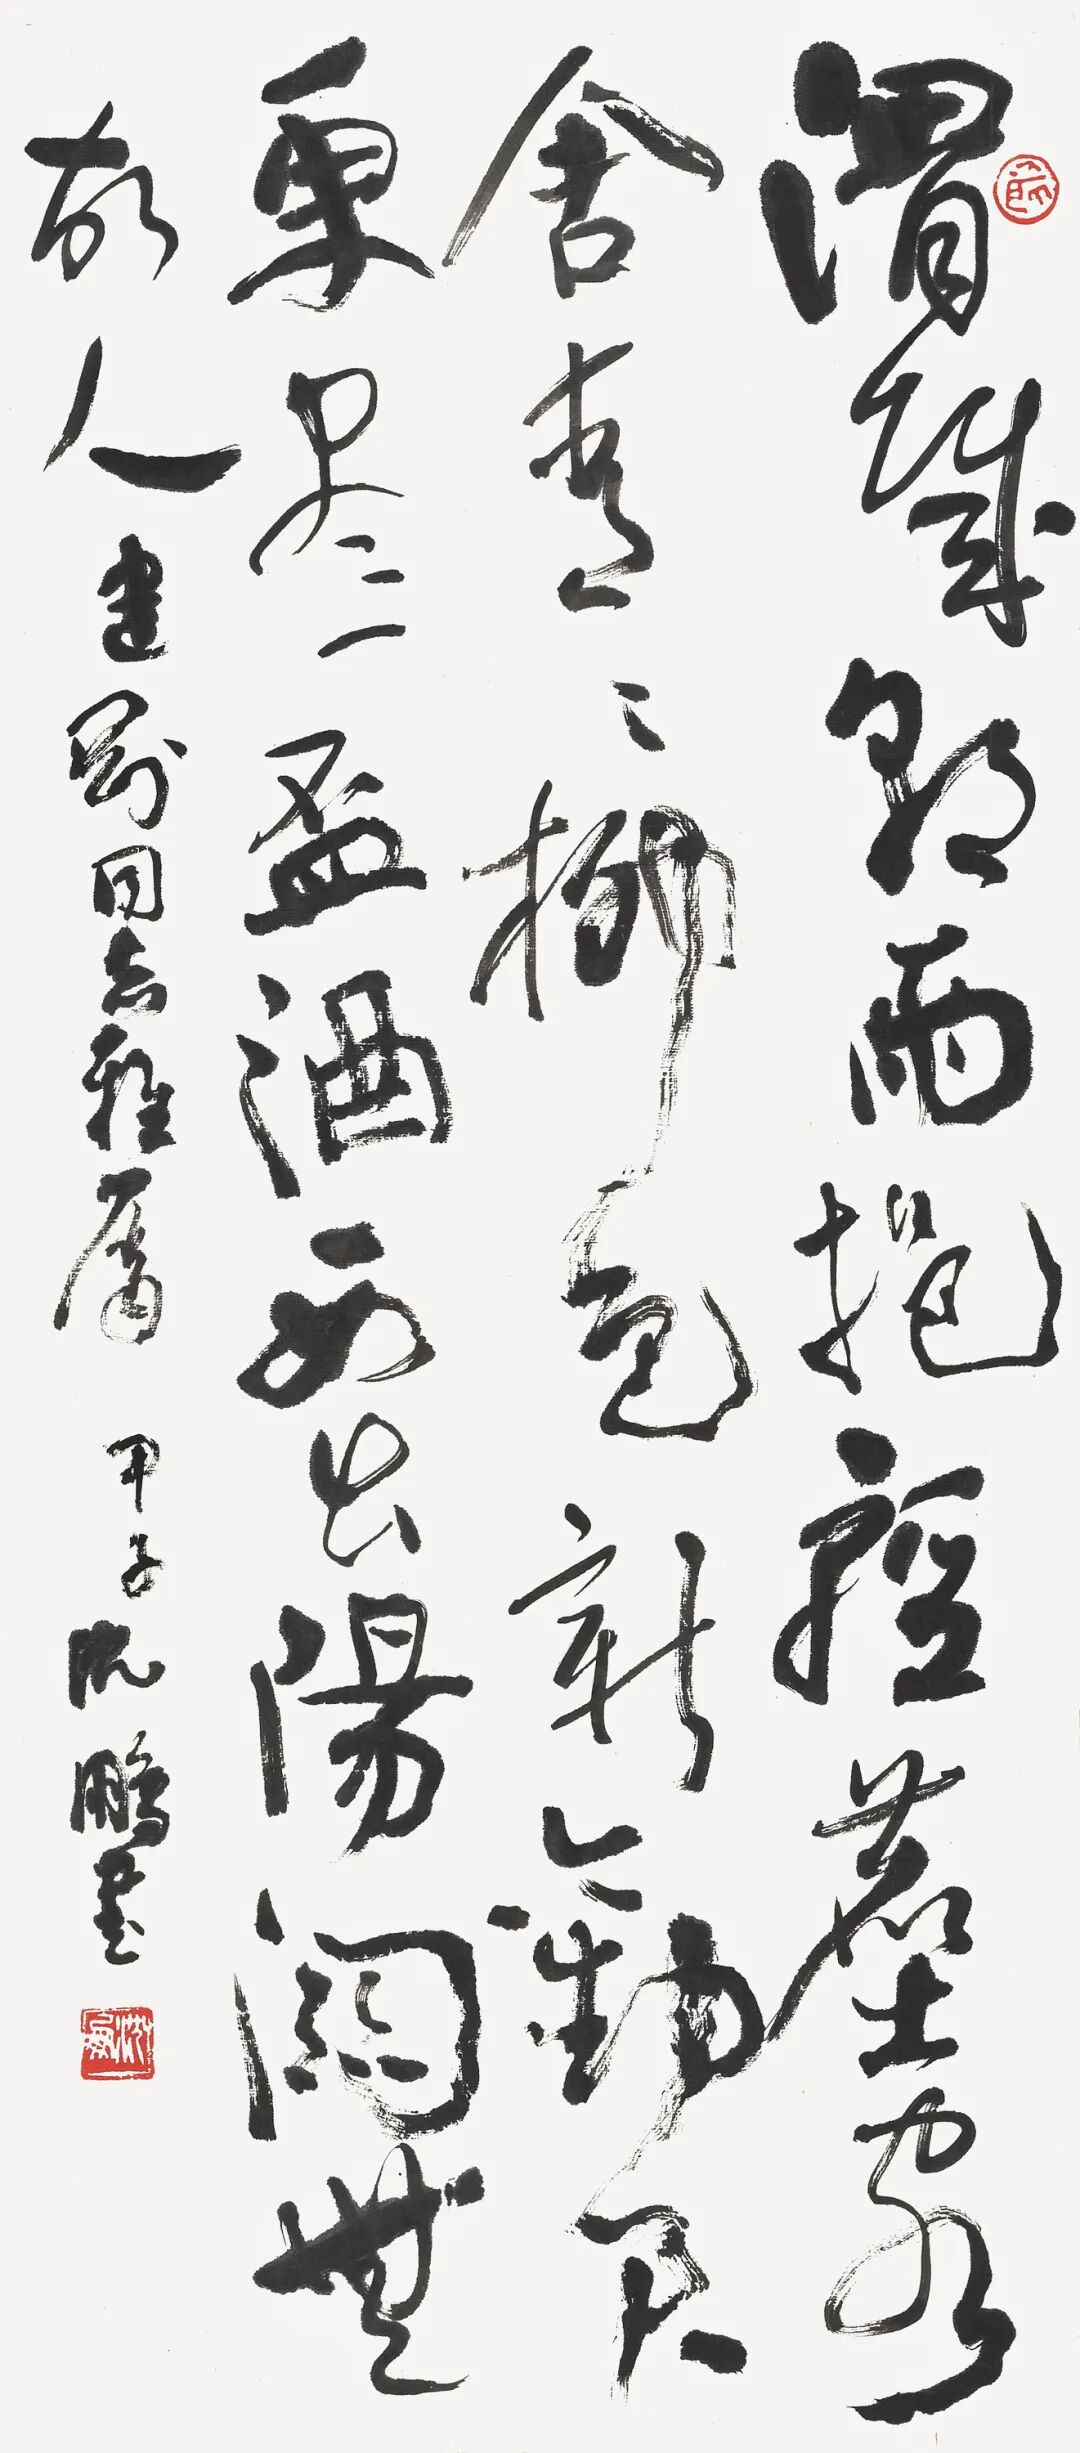 渭城朝雨浥輕塵客
舍青々柳色新勸君
更尽一盃酒西出陽關無
故人 建剛同志雅属 甲子沈鵬書
沈鵬